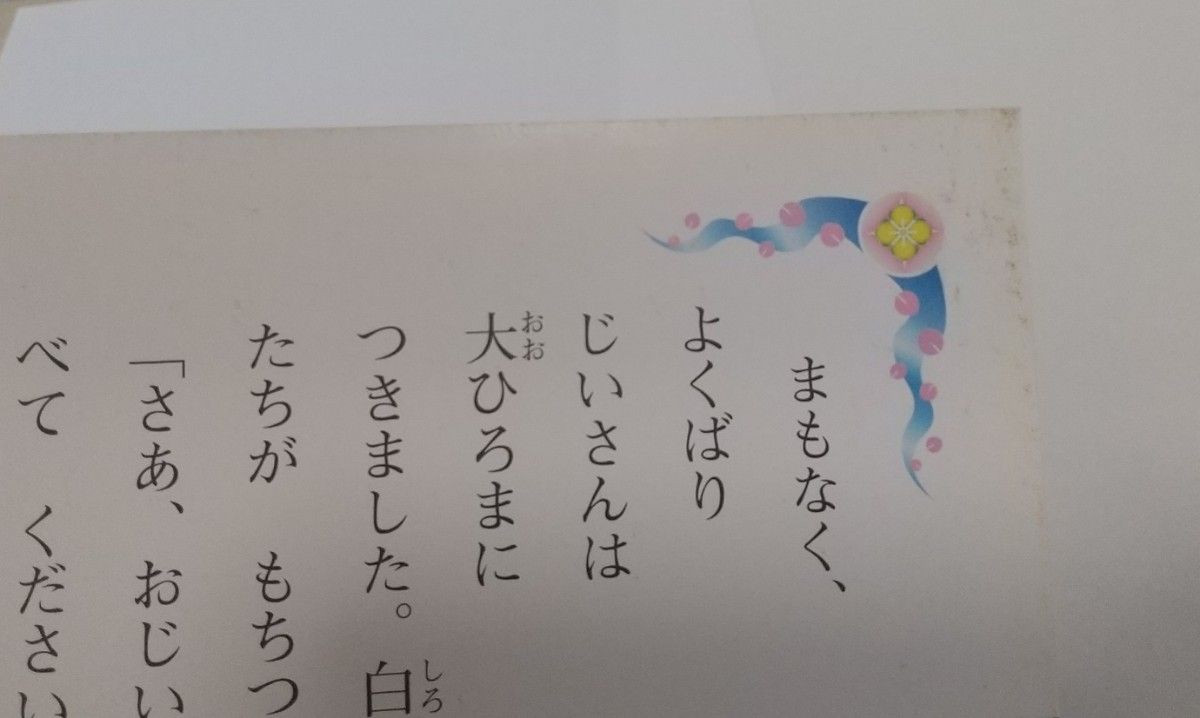 まもなく、
よくばり
じいさんは
大ひろまに
つきました。白
たちが　もちつ
「さあ、おじい
べて　ください